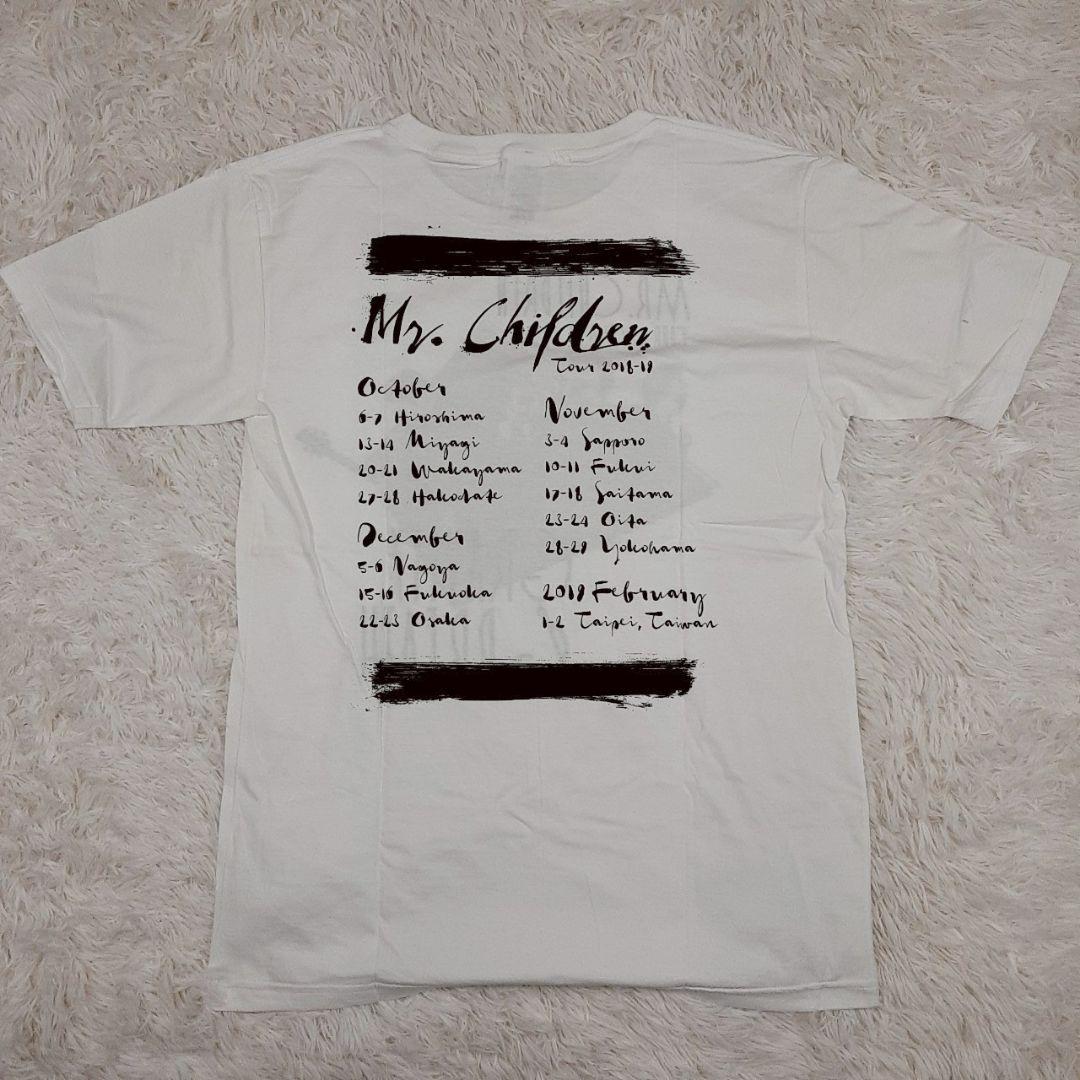 Mr. Children
Tour 2018-19
October
6-7 Hiroshima
13-14 Miyagi
20-21 Wakayama
27-28 Hakodate
December
5-6 Nagoya
15-16 Fukuoka
22-23 Osaka
November
3-4 Sapporo
10-11 Fukui
17-18 Saitama
23-24 Oita
28-29 Yokohama
2019 February
1-2 Taipei, Taiwan